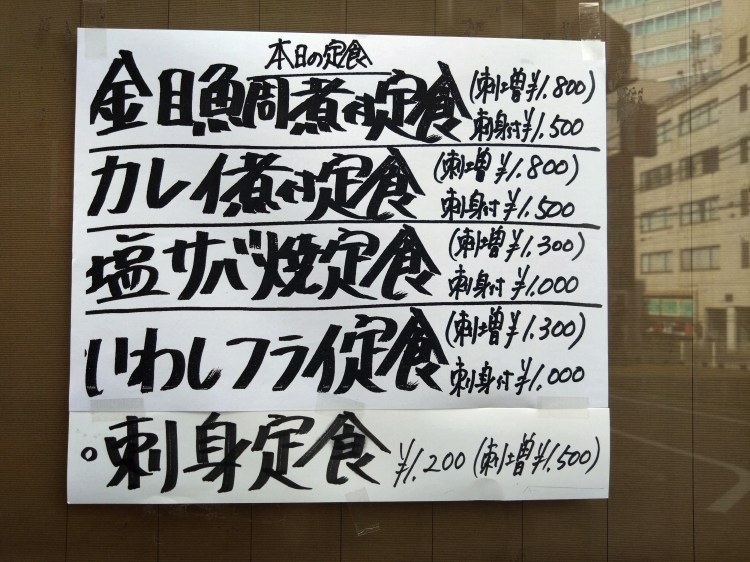 本日の定食
金目鯛煮付定食 (刺増¥1.800)
刺身付¥1.500
カレイ煮付定食 (刺増¥1.800)
刺身付¥1.500
塩サバ焼定食 (刺増¥1.300)
刺身付¥1.000
いわしフライ定食 (刺増¥1.300)
刺身付¥1.000
。刺身定食 ¥1.200 (刺増¥1.500)